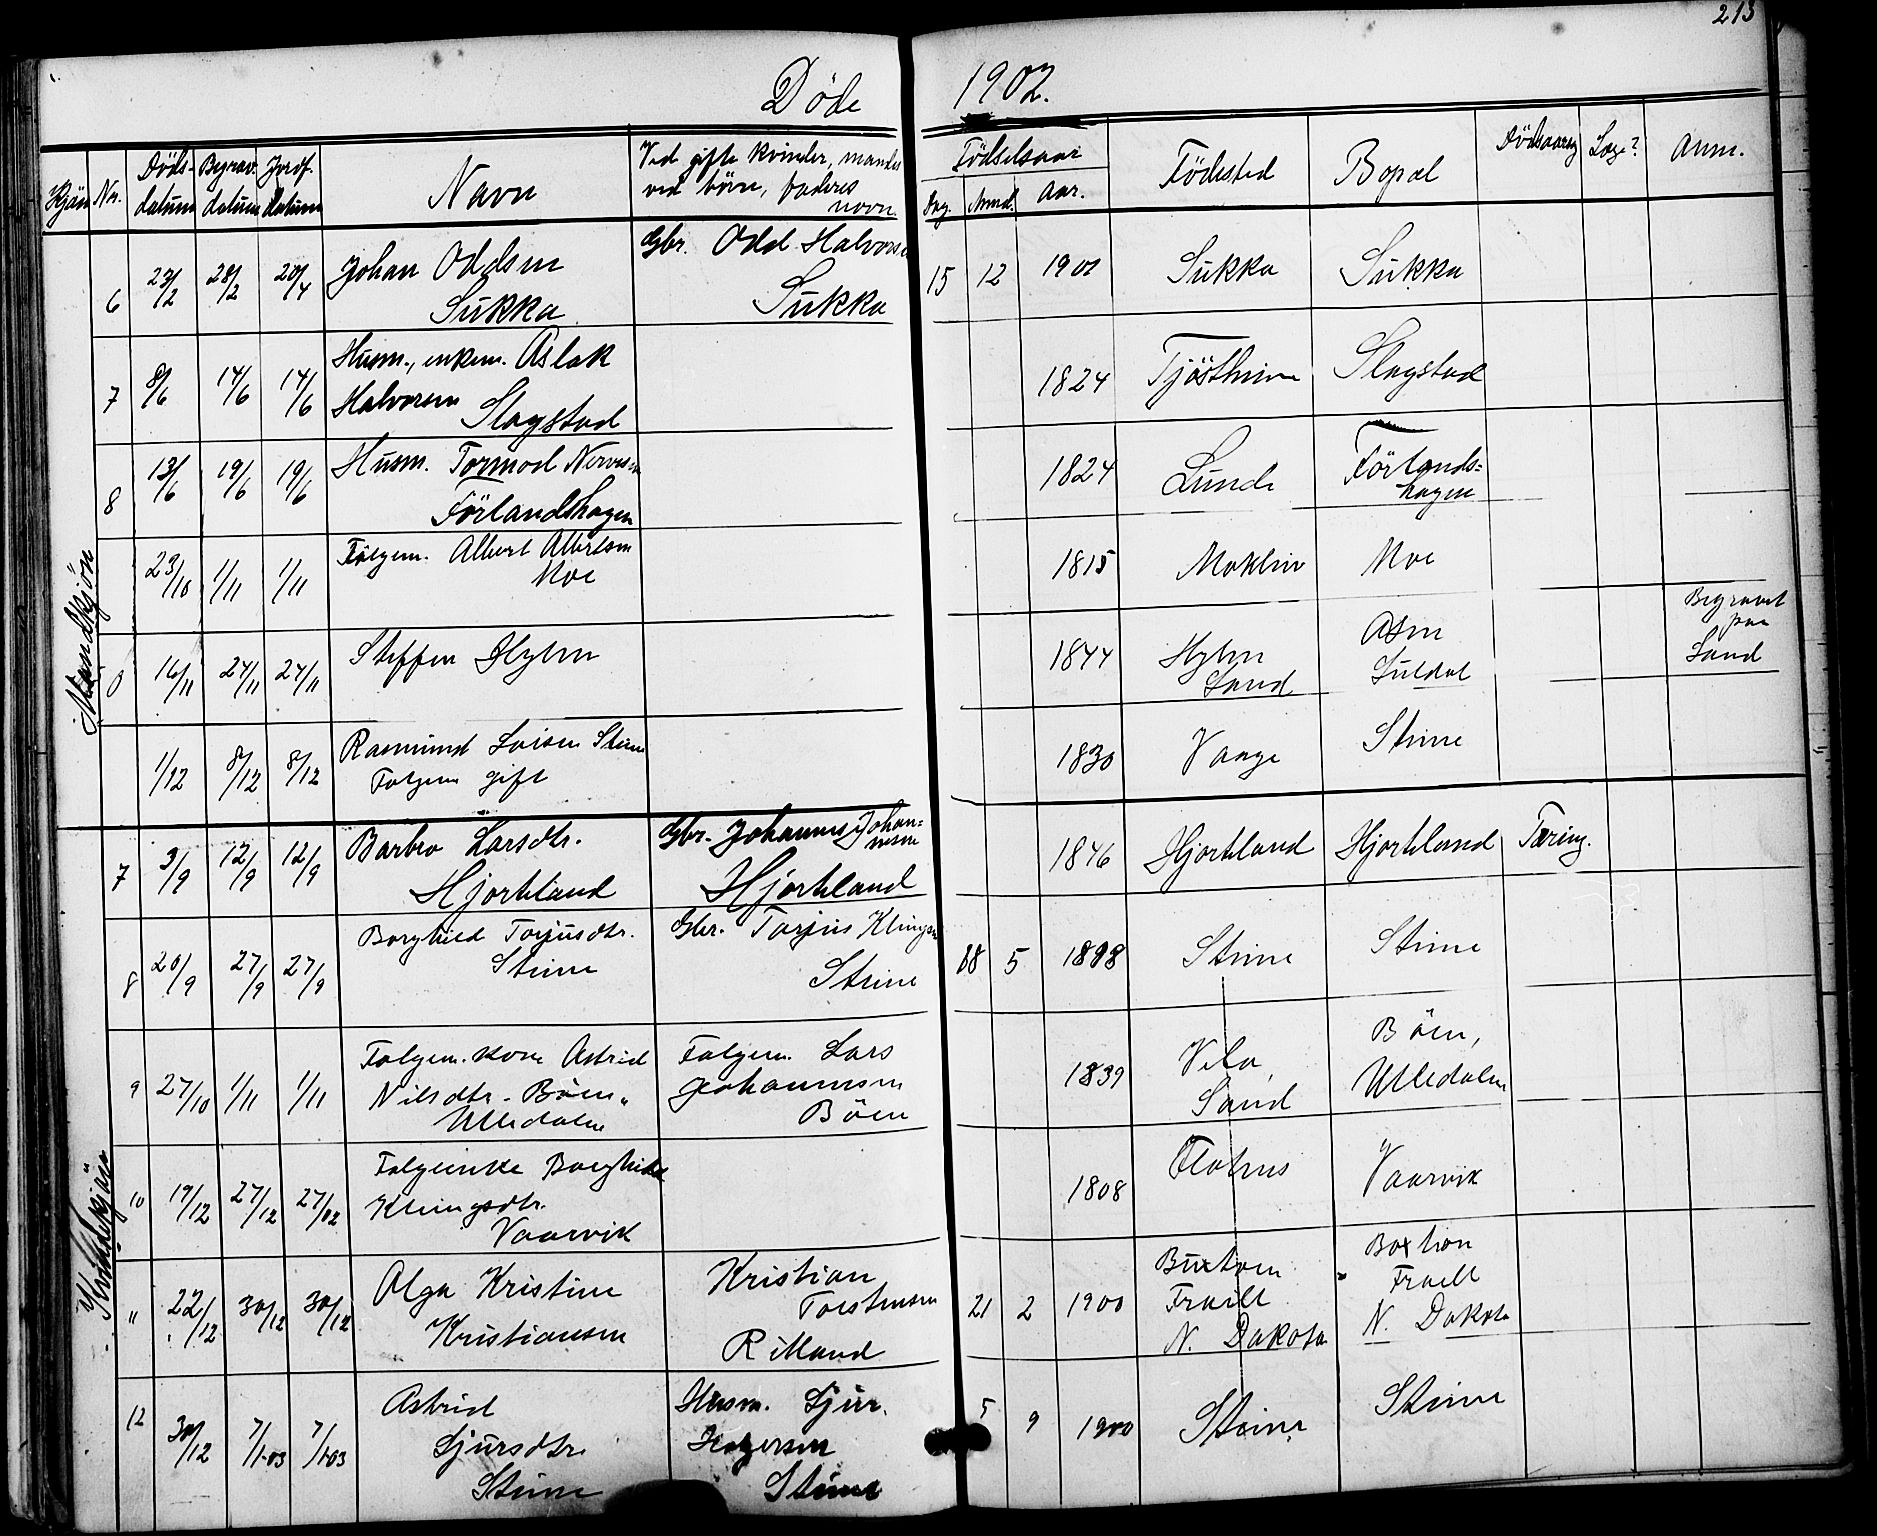 213
Döde 1902.
Kjön Nr. Döds-datum Begrav. datum Jordf. datum Navn Ved gifte kvinder, mands ved börn, faderes navn. Födselsaar Dag. Maned. Aar. Födested Bopæl Dödsaarsag Læge? Anm.
Mandkjön
6 23/2 28/2 20/4 Johan Oddsen Gbr. Odd Halvorsen 15 12 1901 Sukka Sukka
Sukka Sukka
7 8/6 14/6 14/6 Husm., enkem. Aslak 1824 Tjöstheim Slagstad
Halvorsen Slagstad
8 13/6 19/6 19/6 Husm. Tormod 1824 Lunde Förlands=
Förlandshagen hagen
23/10 1/11 1/11 Fölgem. Albert Albertsen 1815 Mokleiv Moe
Moe
0 16/11 24/11 24/11 Steffen Hylen 1844 Hylen Aasen Begravet
Sand Suldal paa
Sand
1/12 8/12 8/12 Rasmund Steine 1830 Vaage Steine
Folgem gift
Kvindekjön
7 3/9 12/9 12/9 Barbro Larsdtr. Gbr. Johannes Johan= 1846 Hjorteland Hjorteland Tæring.
nesen
Hjorteland Hjorteland
8 20/9 27/9 27/9 Borghild Torjusdtr. Gbr. Torjus Klingsen 18 5 1898 Steine Steine
Steine Steine
9 27/10 1/11 1/11 Folgem. kone Astrid Folgem. Lars 1839 Vela, Böen,
Nilsdtr. Böen, Johannesen Sand Ulledalen
Ulledalen Böen
10 19/12 27/12 27/12 Folgeenke Borghild 1808 Flotnes Vaarvik
Klingsdtr.
Vaarvik
" 22/12 30/12 30/12 Olga Kristine Kristian 21 2 1900 Buxton Boxton
Kristiansen Torstensen Traill Traill
Rilland N. Dakota N. Dakota
12 30/12 7/1-03 7/1-03 Astrid Husm. Sjur. 5 9 1900 Steine Steine
Sjursdtr. Holgersen
Steine Steine